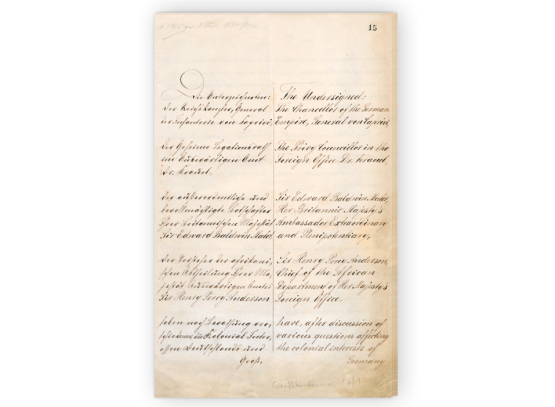 15
Die Unterzeichneten:
Der Reichskanzler, General
der Infanterie von Caprivi,
Der Geheime Legationsrath
im Auswärtigen Amt
Dr. Krauel.
Der außerordentliche und
bevollmächtigte Botschafter
Ihrer Britannischen Majestät
Sir Edward Baldwin Malet
Der Vorsteher der afrikani-
schen Abtheilung Ihrer Ma-
jestät Auswärtigen Amtes
Sir Henry Percy Anderson
haben nach Berathung ver-
schiedener Kolonial Inter-
essen Deutschlands und
Groß-
The Undersigned:
The Chancellor of the German
Empire, General von Caprivi,
The Privy Councillor in the
Foreign Office Dr. Krauel
Sir Edward Baldwin Malet,
Her Britannic Majesty's
Ambassador Extraordinary
and Plenipotentiary,
Sir Henry Percy Anderson,
Chief of the African
Department of Her Majesty's
Foreign Office.
have, after discussion of
various questions affecting
the colonial interests of
Germany